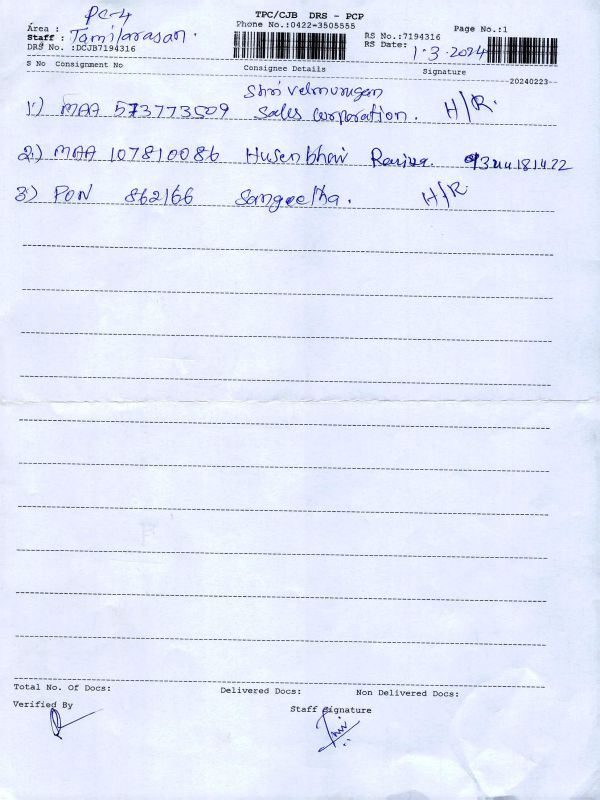 TPC/CJB DRS - PCP
Phone No.:0422-3505555
Page No.:1
Area : PC-4
Staff : Tamilarasan.
RS No.:7194316
DRS No. :DCJB7194316
RS Date: 1.3.2024
S No Consignment No Consignee Details Signature
--20240223--
Shri velmurugan
1) MAA 573773509 Sales corporation. H/R.
2) MAA 107810086 Husenbhai
3) PON 862166 Sangeetha. H/R
Total No. Of Docs: Delivered Docs: Non Delivered Docs:
Verified By
Staff Signature